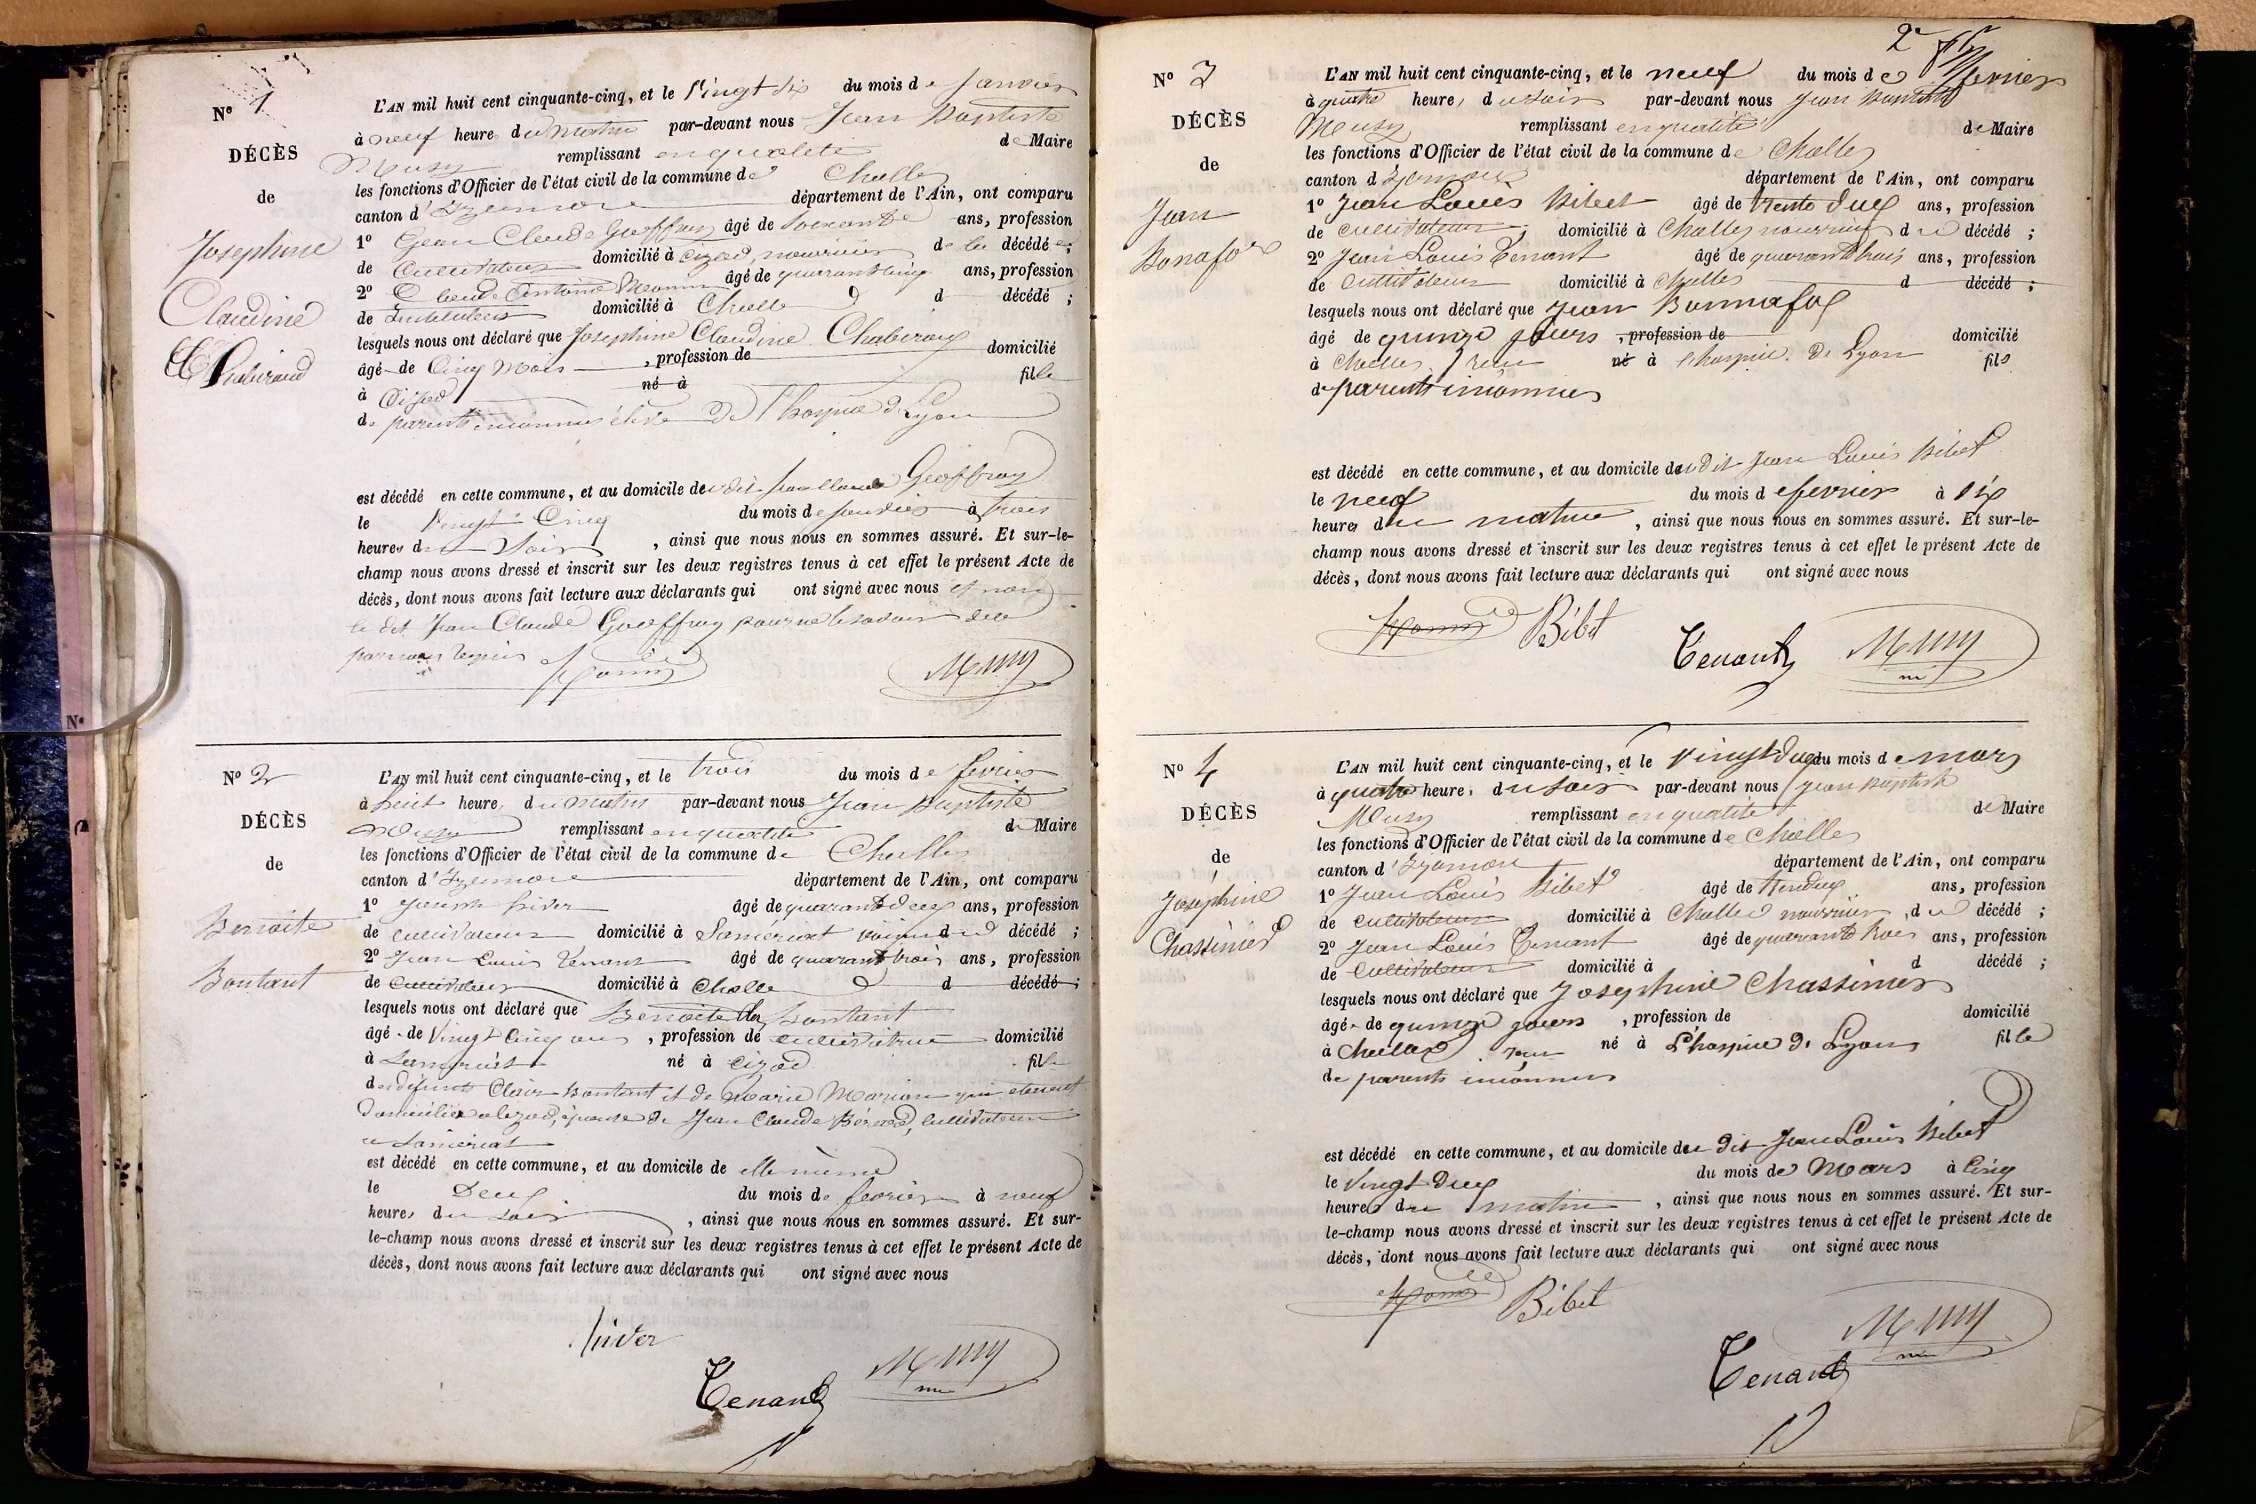 N° 1
DÉCÈS
de
Josephine
Claudine
Chabiraud
L'AN mil huit cent cinquante-cinq, et le Vingt six du mois de Janvier
à neuf heures du matin par-devant nous Jean Baptiste
Musy remplissant en qualité de Maire
les fonctions d'Officier de l'état civil de la commune de Challes
canton d'Izernore département de l'Ain, ont comparu
1° Jean Claude Geoffray âgé de Soixante ans, profession
de Cultivateur domicilié à Cizod, nourricier de la décédée ;
2° Claude Antoine âgé de quarante cinq ans, profession
de Instituteur domicilié à Challe d décédé ;
lesquels nous ont déclaré que Josephine Claudine Chabiraux
âgé de Cinq Mois , profession de domicilié
à né à fille
de parents inconnus élève de l'hospice de Lyon
est décédé en cette commune, et au domicile du dit Jean Claude Geoffray
le Vingt Cinq du mois de Janvier à trois
heures du Soir , ainsi que nous nous en sommes assuré. Et sur-le-
champ nous avons dressé et inscrit sur les deux registres tenus à cet effet le présent Acte de
décès, dont nous avons fait lecture aux déclarants qui ont signé avec nous et non
le dit Jean Claude Geoffray pour ne le savoir de ce
par nous requis
Musy
N° 2
DÉCÈS
de
Benoite
Bontant
L'AN mil huit cent cinquante-cinq, et le trois du mois de fevrier
à huit heures du matin par-devant nous Jean Baptiste
Musy remplissant en qualité de Maire
les fonctions d'Officier de l'état civil de la commune de Challes
canton d'Izernore département de l'Ain, ont comparu
1° Joseph hiver âgé de quarante deux ans, profession
de cultivateur domicilié à Samériat voisin d décédé ;
2° Jean Louis Tenant âgé de quarante trois ans, profession
de Cultivateur domicilié à Challe d décédé ;
lesquels nous ont déclaré que Benoite Bontant
âgé de Vingt Cinq ans , profession de cultivatrice domicilié
à Samériat né à Cizod fille
des défunts Clair Bontant et de Marie Marion qui etaient
domiciliés a Cizod, épouse de Jean Claude Bérard, Cultivateur
a Samériat
est décédé en cette commune, et au domicile de elle même
le Deux du mois de fevrier à neuf
heures du soir , ainsi que nous nous en sommes assuré. Et sur-
le-champ nous avons dressé et inscrit sur les deux registres tenus à cet effet le présent Acte de
décès, dont nous avons fait lecture aux déclarants qui ont signé avec nous
hiver
Tenant
Musy
2e
N° 3
DÉCÈS
de
Jean
Bonafox
L'AN mil huit cent cinquante-cinq, et le neuf du mois de fevrier
à quatre heures du soir par-devant nous Jean Baptiste
Musy remplissant en qualité de Maire
les fonctions d'Officier de l'état civil de la commune de Challes
canton d'Izernore département de l'Ain, ont comparu
1° Jean Louis Bibet âgé de trente deux ans, profession
de cultivateur, domicilié à Challes nourricier du décédé ;
2° Jean Louis Tenant âgé de quarante trois ans, profession
de Cultivateur domicilié à Challes d décédé ;
lesquels nous ont déclaré que Jean Bonnafox
âgé de quinze jours , profession de domicilié
à Challes, né à l'hospice de Lyon fils
de parents inconnus
est décédé en cette commune, et au domicile du dit Jean Louis Bibet
le neuf du mois de fevrier à six
heures du matin , ainsi que nous nous en sommes assuré. Et sur-le-
champ nous avons dressé et inscrit sur les deux registres tenus à cet effet le présent Acte de
décès, dont nous avons fait lecture aux déclarants qui ont signé avec nous
Bibet
Tenant
Musy
N° 4
DÉCÈS
de
Joséphine
Chassinier
L'AN mil huit cent cinquante-cinq, et le Vingt deux du mois de mars
à quatre heures du soir par-devant nous Jean Baptiste
Musy remplissant en qualité de Maire
les fonctions d'Officier de l'état civil de la commune de Challes
canton d'Izernore département de l'Ain, ont comparu
1° Jean Louis Bibet âgé de trendeux ans, profession
de cultivateur domicilié à Challes nourricier du décédé ;
2° Jean Louis Tenant âgé de quarante trois ans, profession
de Cultivateur domicilié à d décédé ;
lesquels nous ont déclaré que Joséphine Chassinier
âgé de quinze jours , profession de domicilié
à Challes né à L'hospice de Lyon fille
de parents inconnus
est décédé en cette commune, et au domicile du dit Jean Louis Bibet
le Vingt deux du mois de Mars à Cinq
heures du matin , ainsi que nous nous en sommes assuré. Et sur-
le-champ nous avons dressé et inscrit sur les deux registres tenus à cet effet le présent Acte de
décès, dont nous avons fait lecture aux déclarants qui ont signé avec nous
Bibet
Musy
Tenant